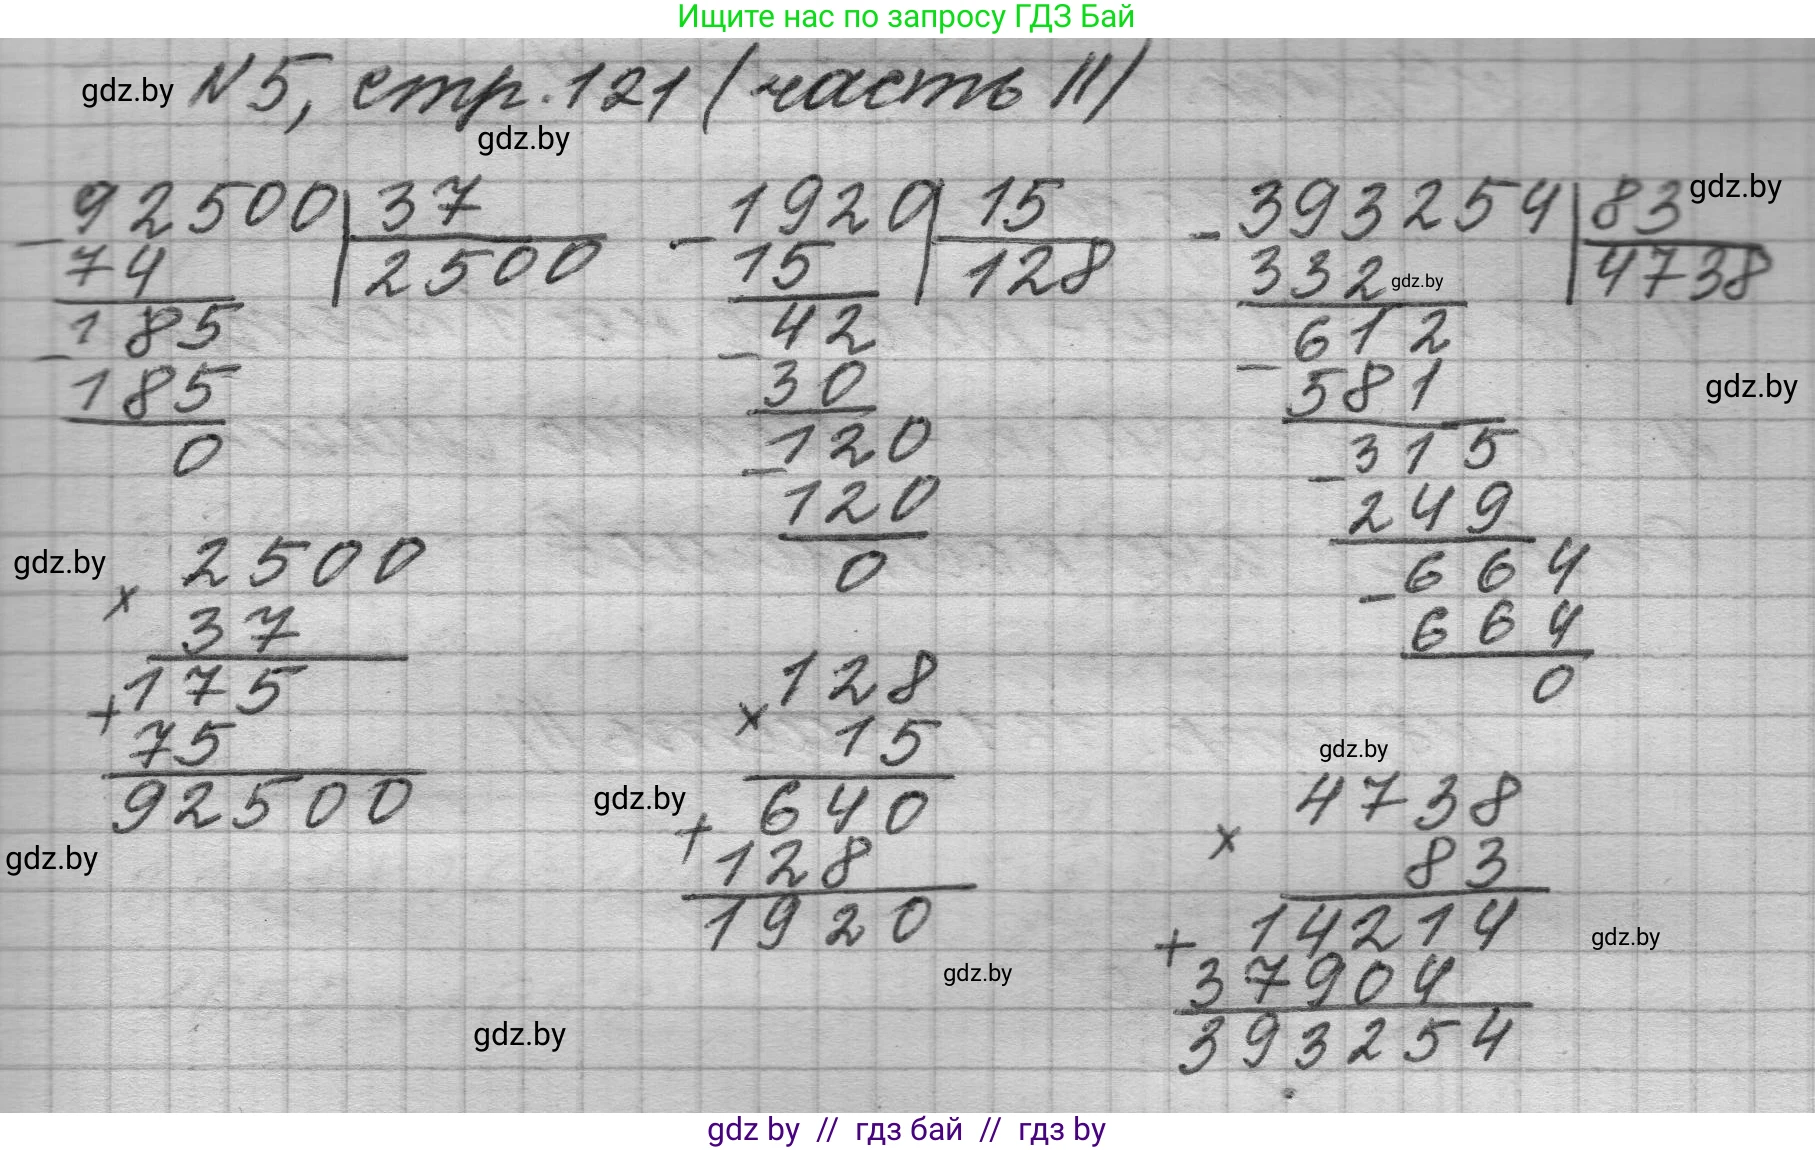 Ищите нас по запросу ГДЗ Бай
gdz.by
N5, стр. 121 (часть II)
gdz.by
92500 37
- 74 2500
185
- 185
0
2500
× 37
175
+ 75
92500
1920 15
- 15 128
42
- 30
120
- 120
0
128
× 15
640
+ 128
1920
393254 83
- 332 4738
612
- 581
315
- 249
664
- 664
0
4738
× 83
14214
+ 37904
393254
gdz.by
gdz.by
gdz.by
gdz.by
gdz.by
gdz.by
gdz.by
gdz.by
gdz.by
gdz.by
gdz by // гдз бай // гдз by